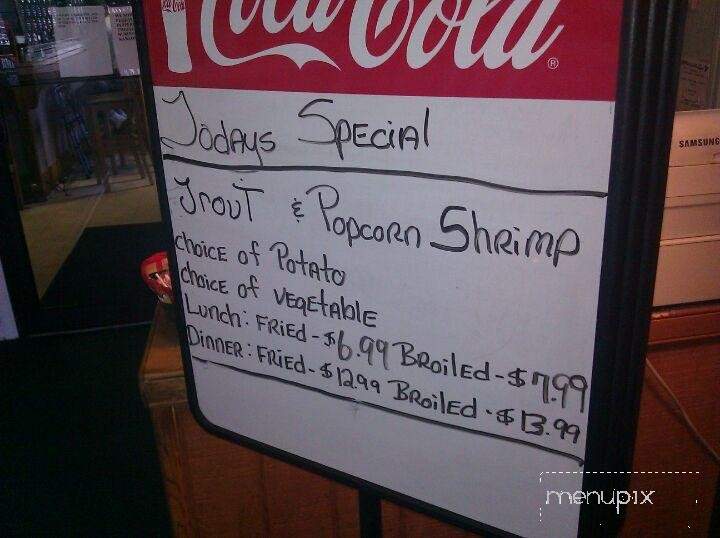 Coca-Cola
®
Todays Special
Trout & Popcorn Shrimp
choice of Potato
choice of vegetable
Lunch: Fried - $6.99 Broiled - $7.99
Dinner: Fried - $12.99 Broiled - $13.99
SAMSUNG
menupix